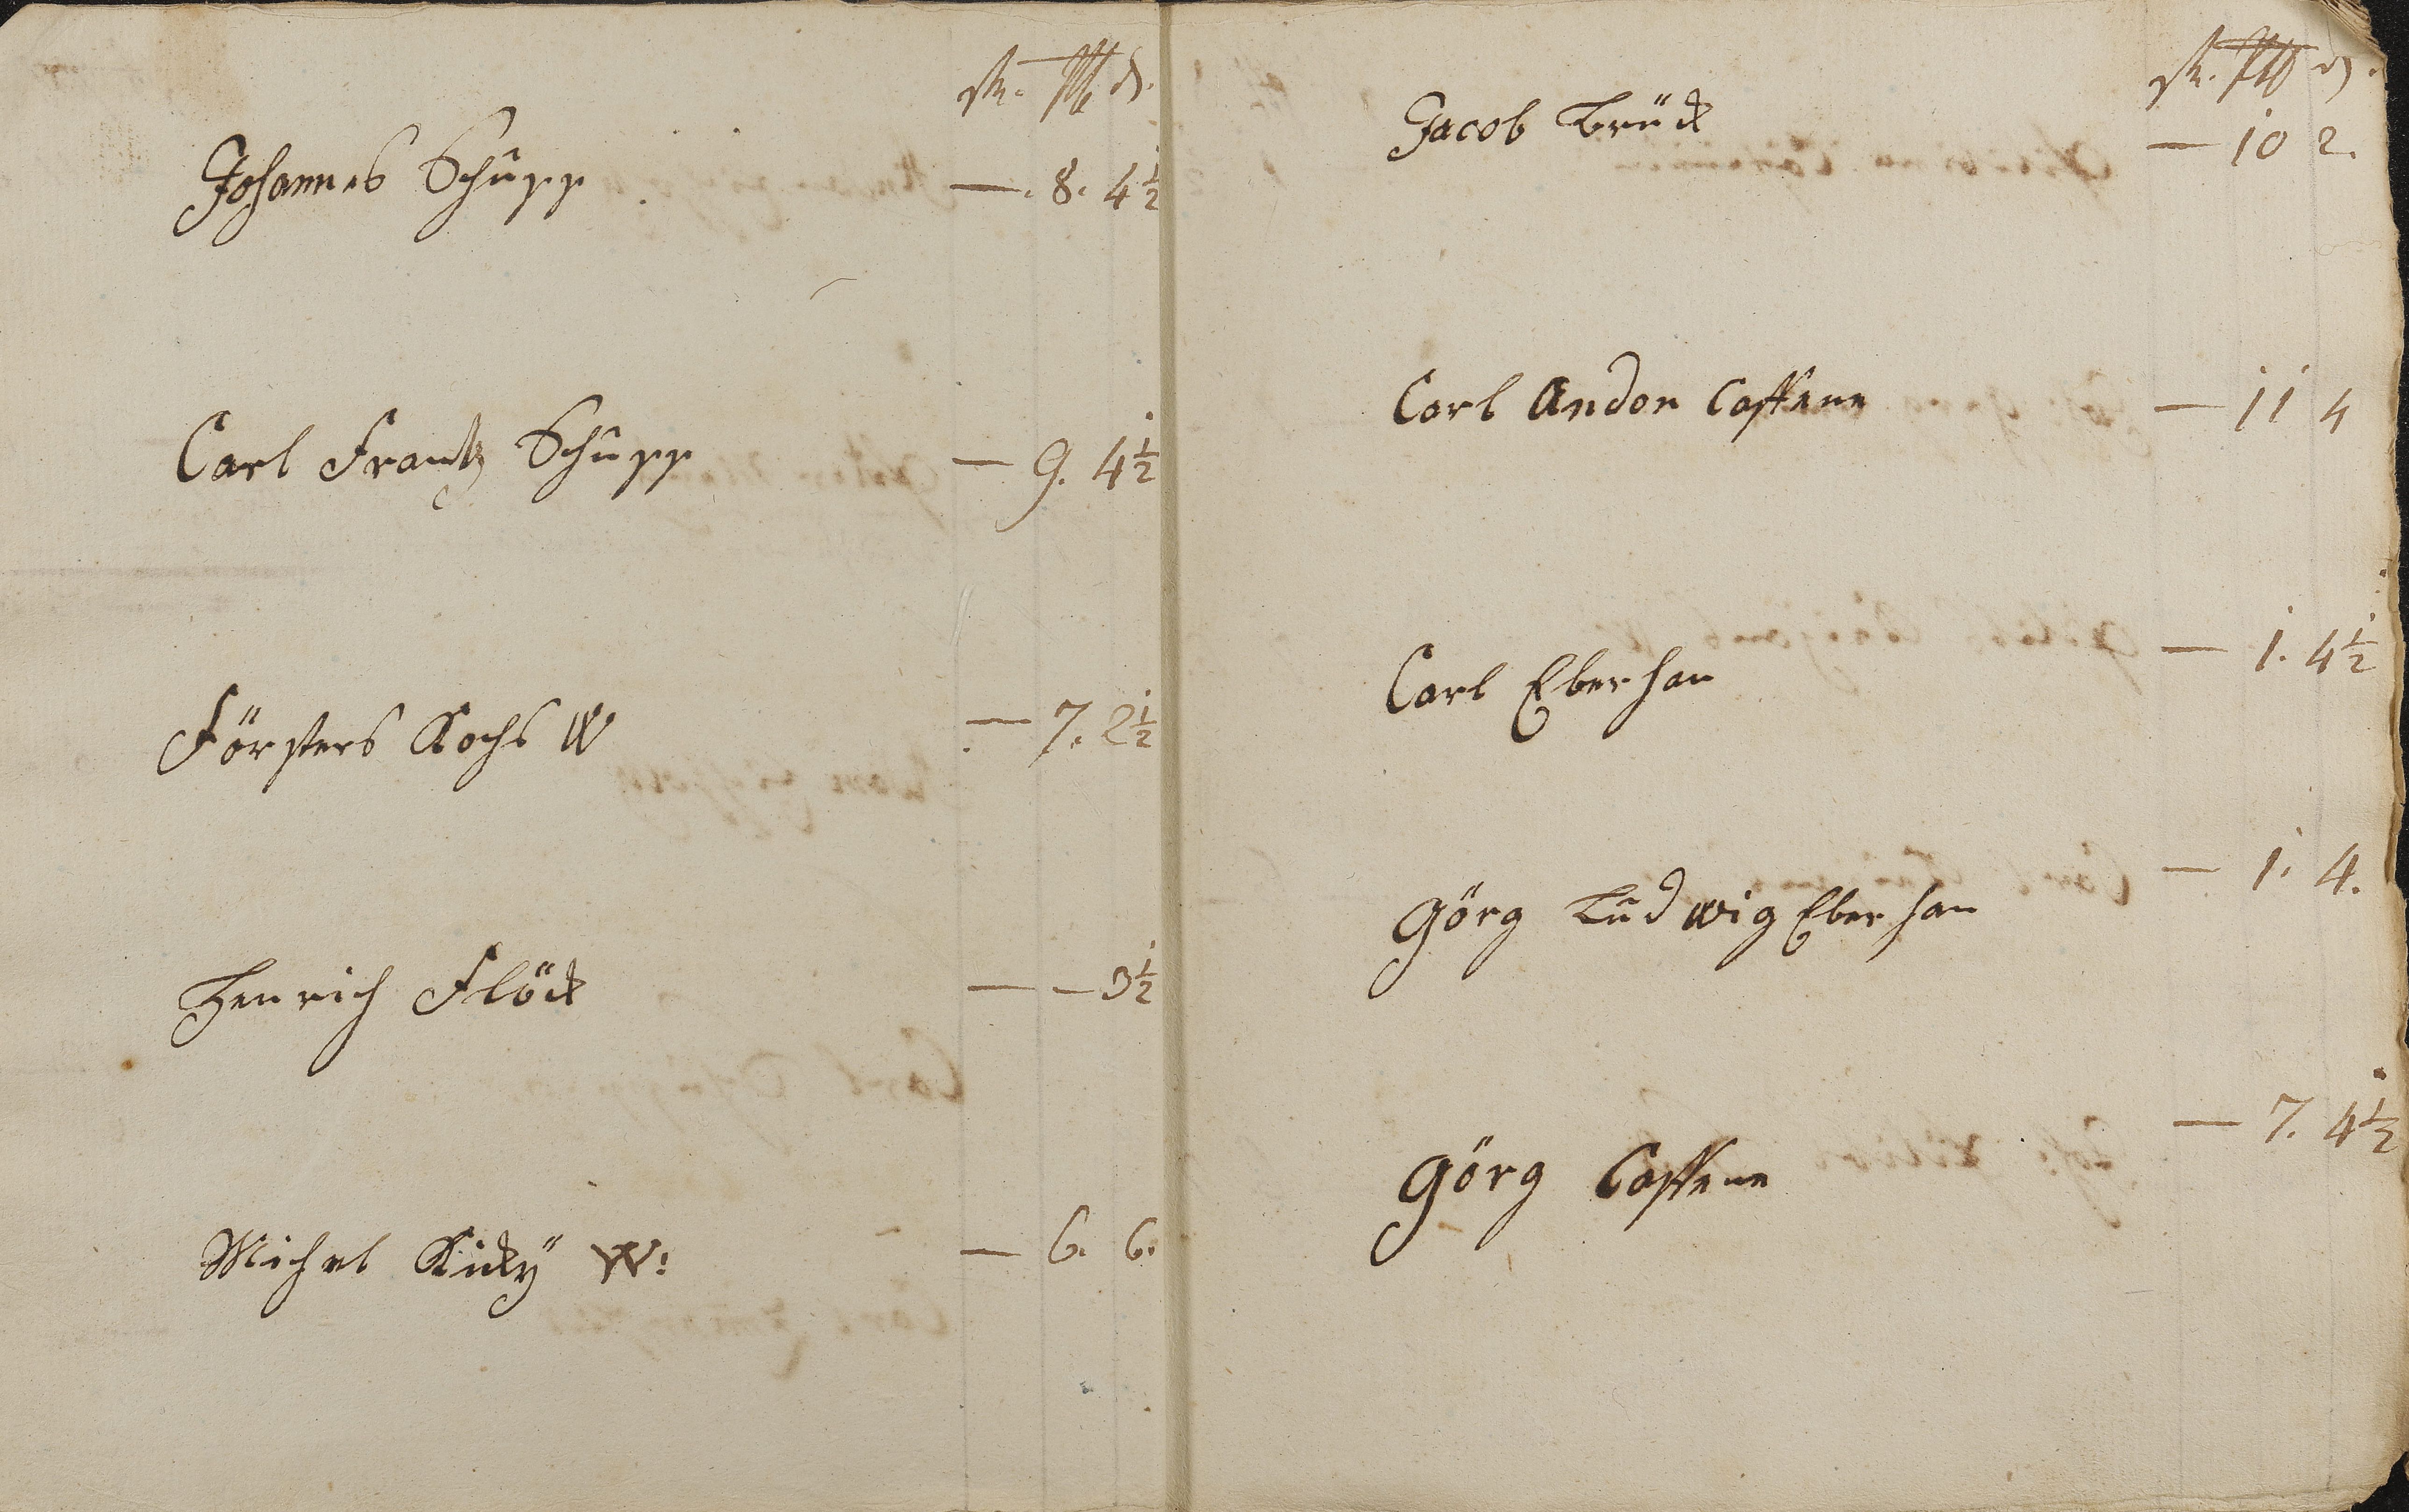 Johannes Schupp —. 8. 4½
Carl Frantz Schupp — 9. 4½
Försters Kochs W — 7. 2½
Henrich Flöck — — 3½
Michel Kicky W: — 6. 6.
Jacob Brück — 10 2.
Carl Andon Caffene — 11 4
Carl Eberhan — 1. 4½
Görg Ludwig Eberhan — 1. 4.
Görg Caffene — 7. 4½